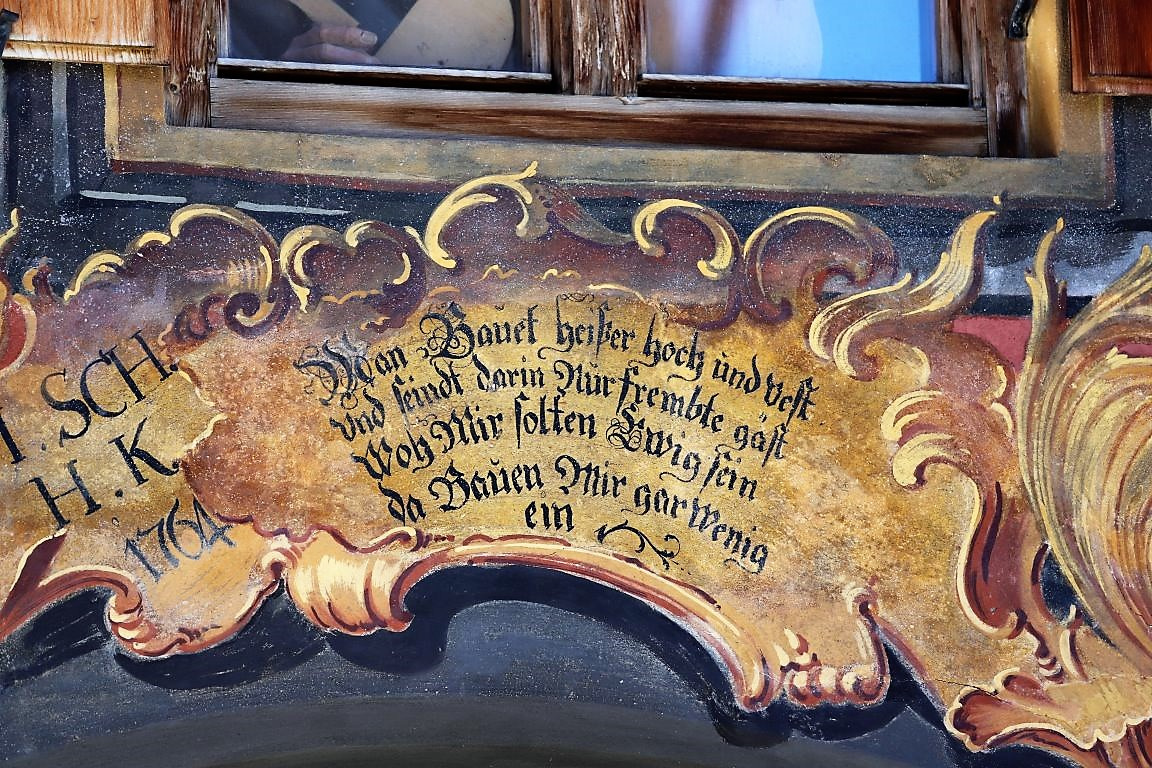 I. SCH.
H. K.
1764
Man Bauet heißer hoch und vest
und seindt darin Nur frembte gäst
Woh Mir solten Ewig sein
da Bauen Mir gar Wenig
ein